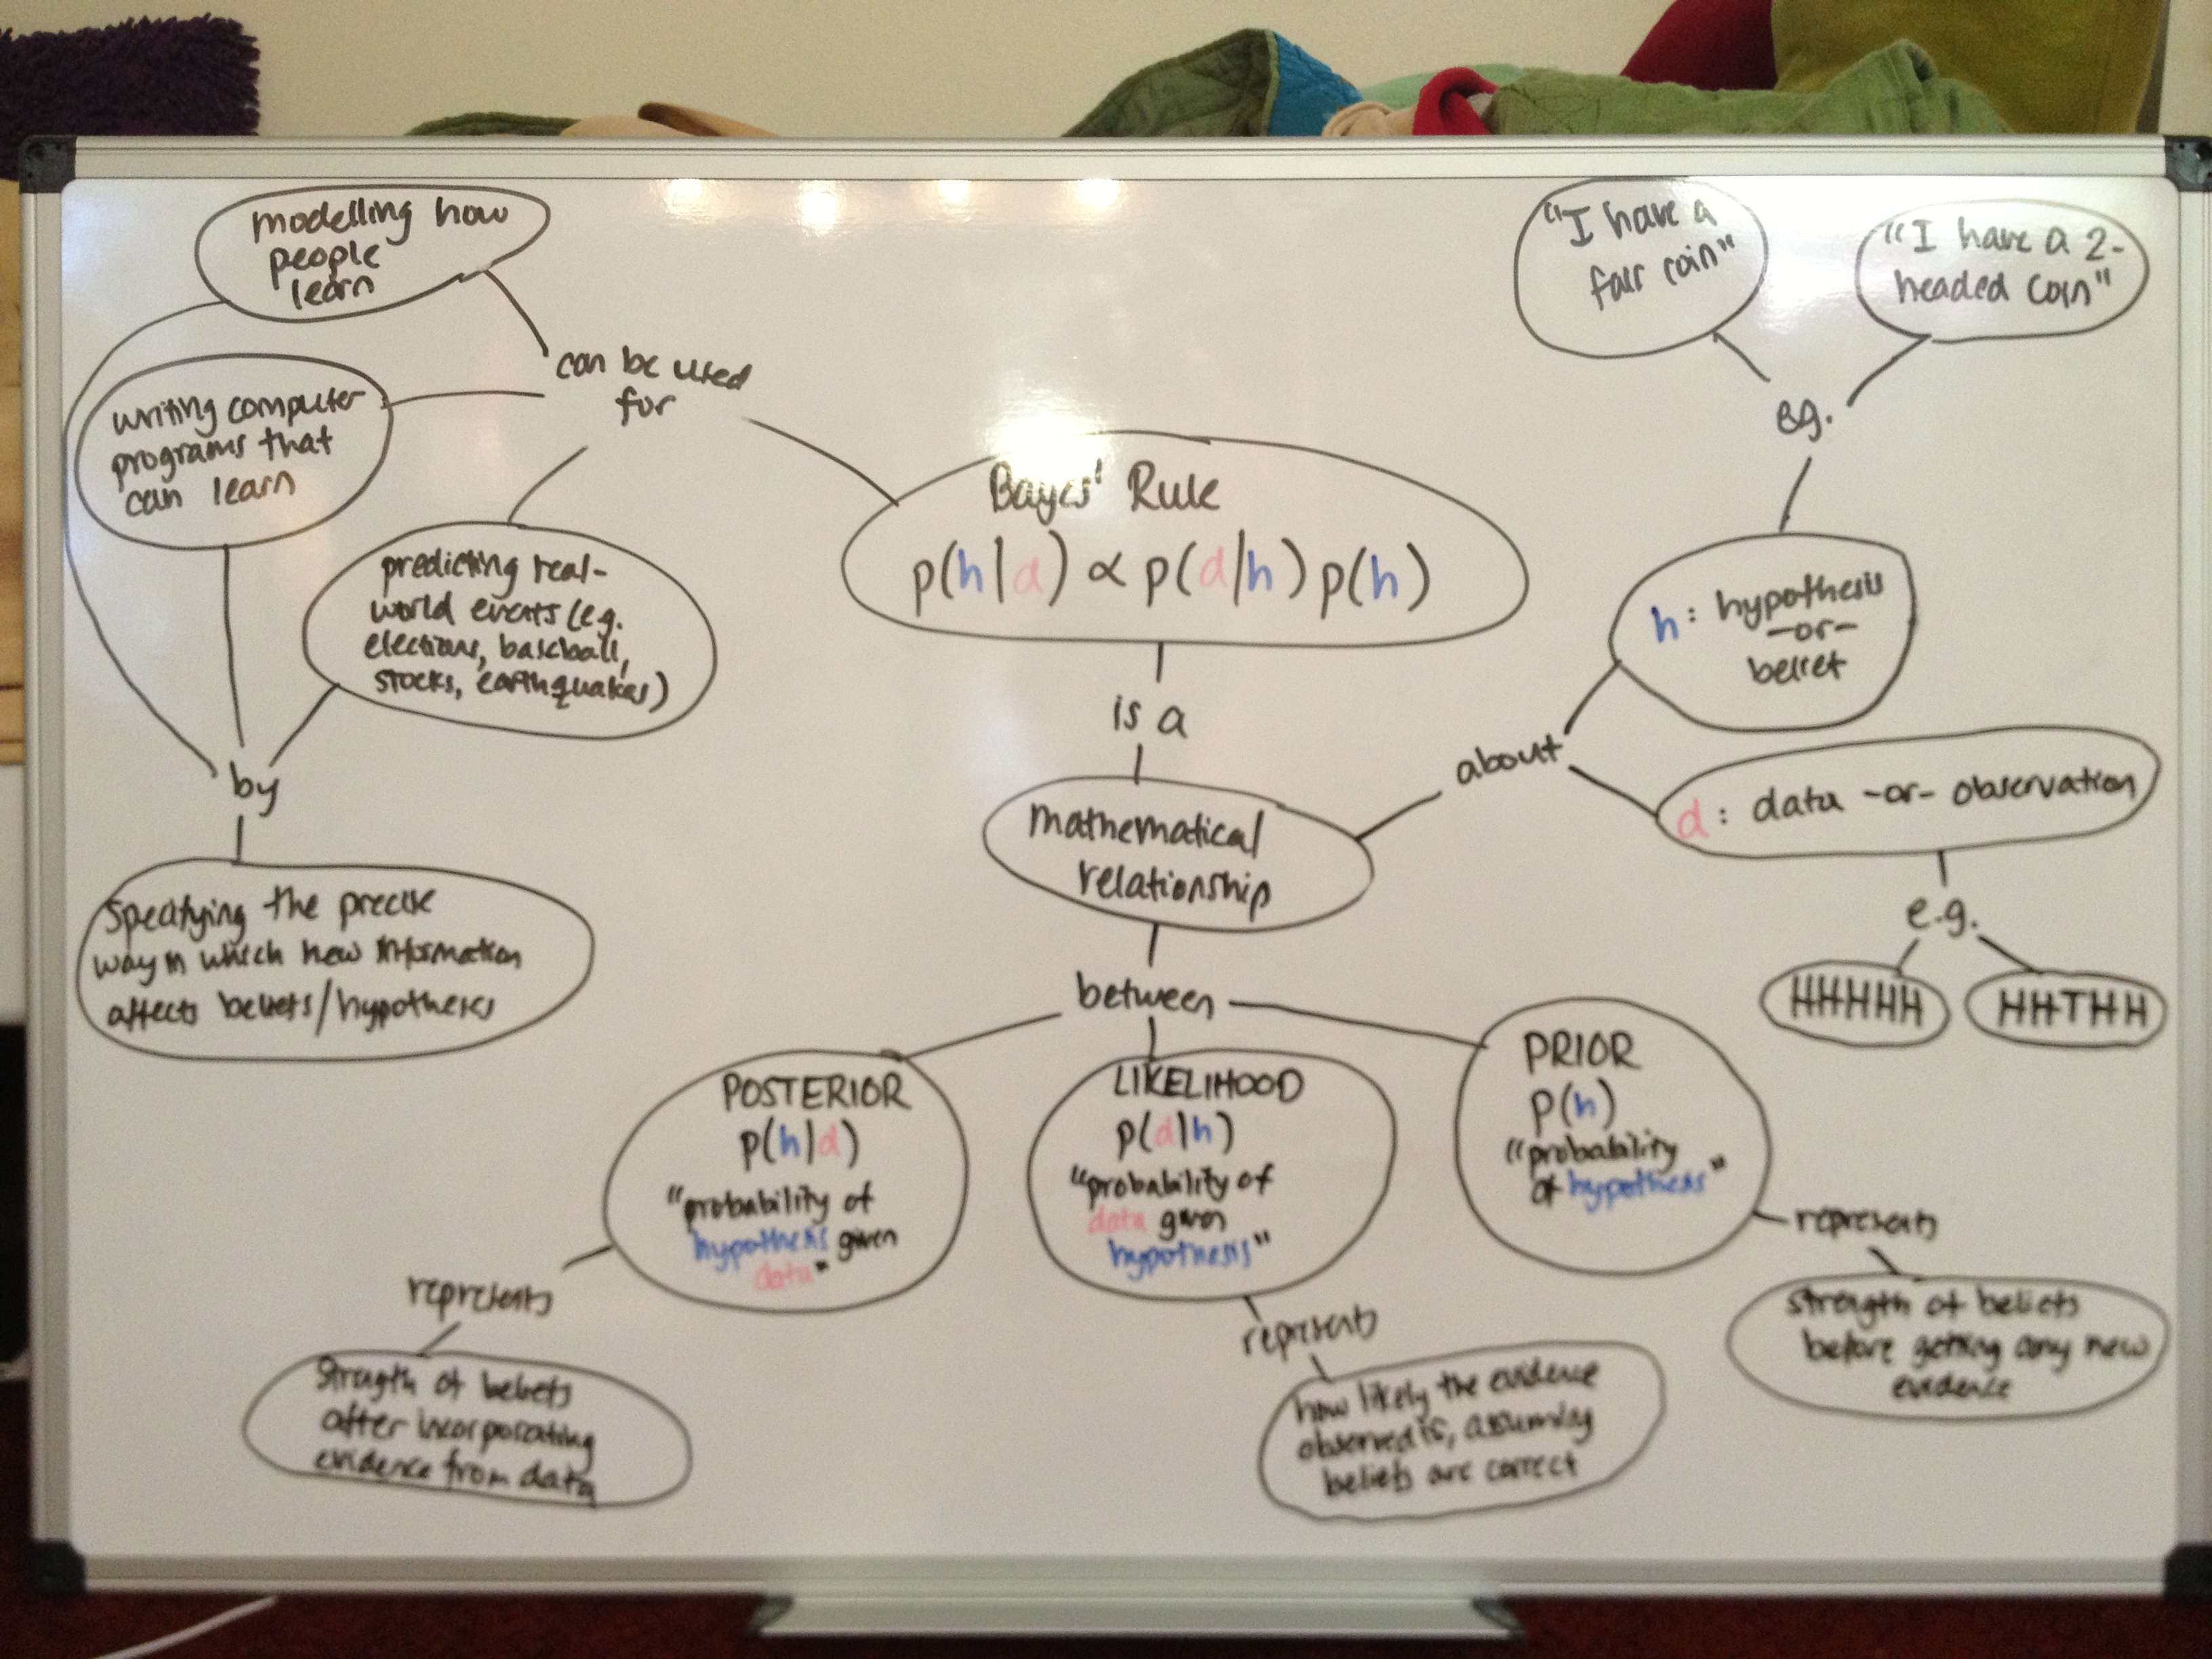 modelling how
people
learn
can be used
for
writing computer
programs that
can learn
predicting real-
world events (e.g.
elections, baseball,
stocks, earthquakes)
by
Specifying the precise
way in which new information
affects beliefs/hypotheses
Bayes' Rule
p(h|d) ∝ p(d|h) p(h)
is a
mathematical
relationship
about
h: hypothesis
-or-
belief
eg.
"I have a
fair coin"
"I have a 2-
headed coin"
d: data -or- observation
e.g.
HHHHH
HHTHH
between
POSTERIOR
p(h|d)
"probability of
hypothesis given
data"
represents
Strength of beliefs
after incorporating
evidence from data
LIKELIHOOD
p(d|h)
"probability of
data given
hypothesis"
represents
how likely the evidence
observed is, assuming
beliefs are correct
PRIOR
p(h)
"probability
of hypothesis"
represents
Strength of beliefs
before getting any new
evidence